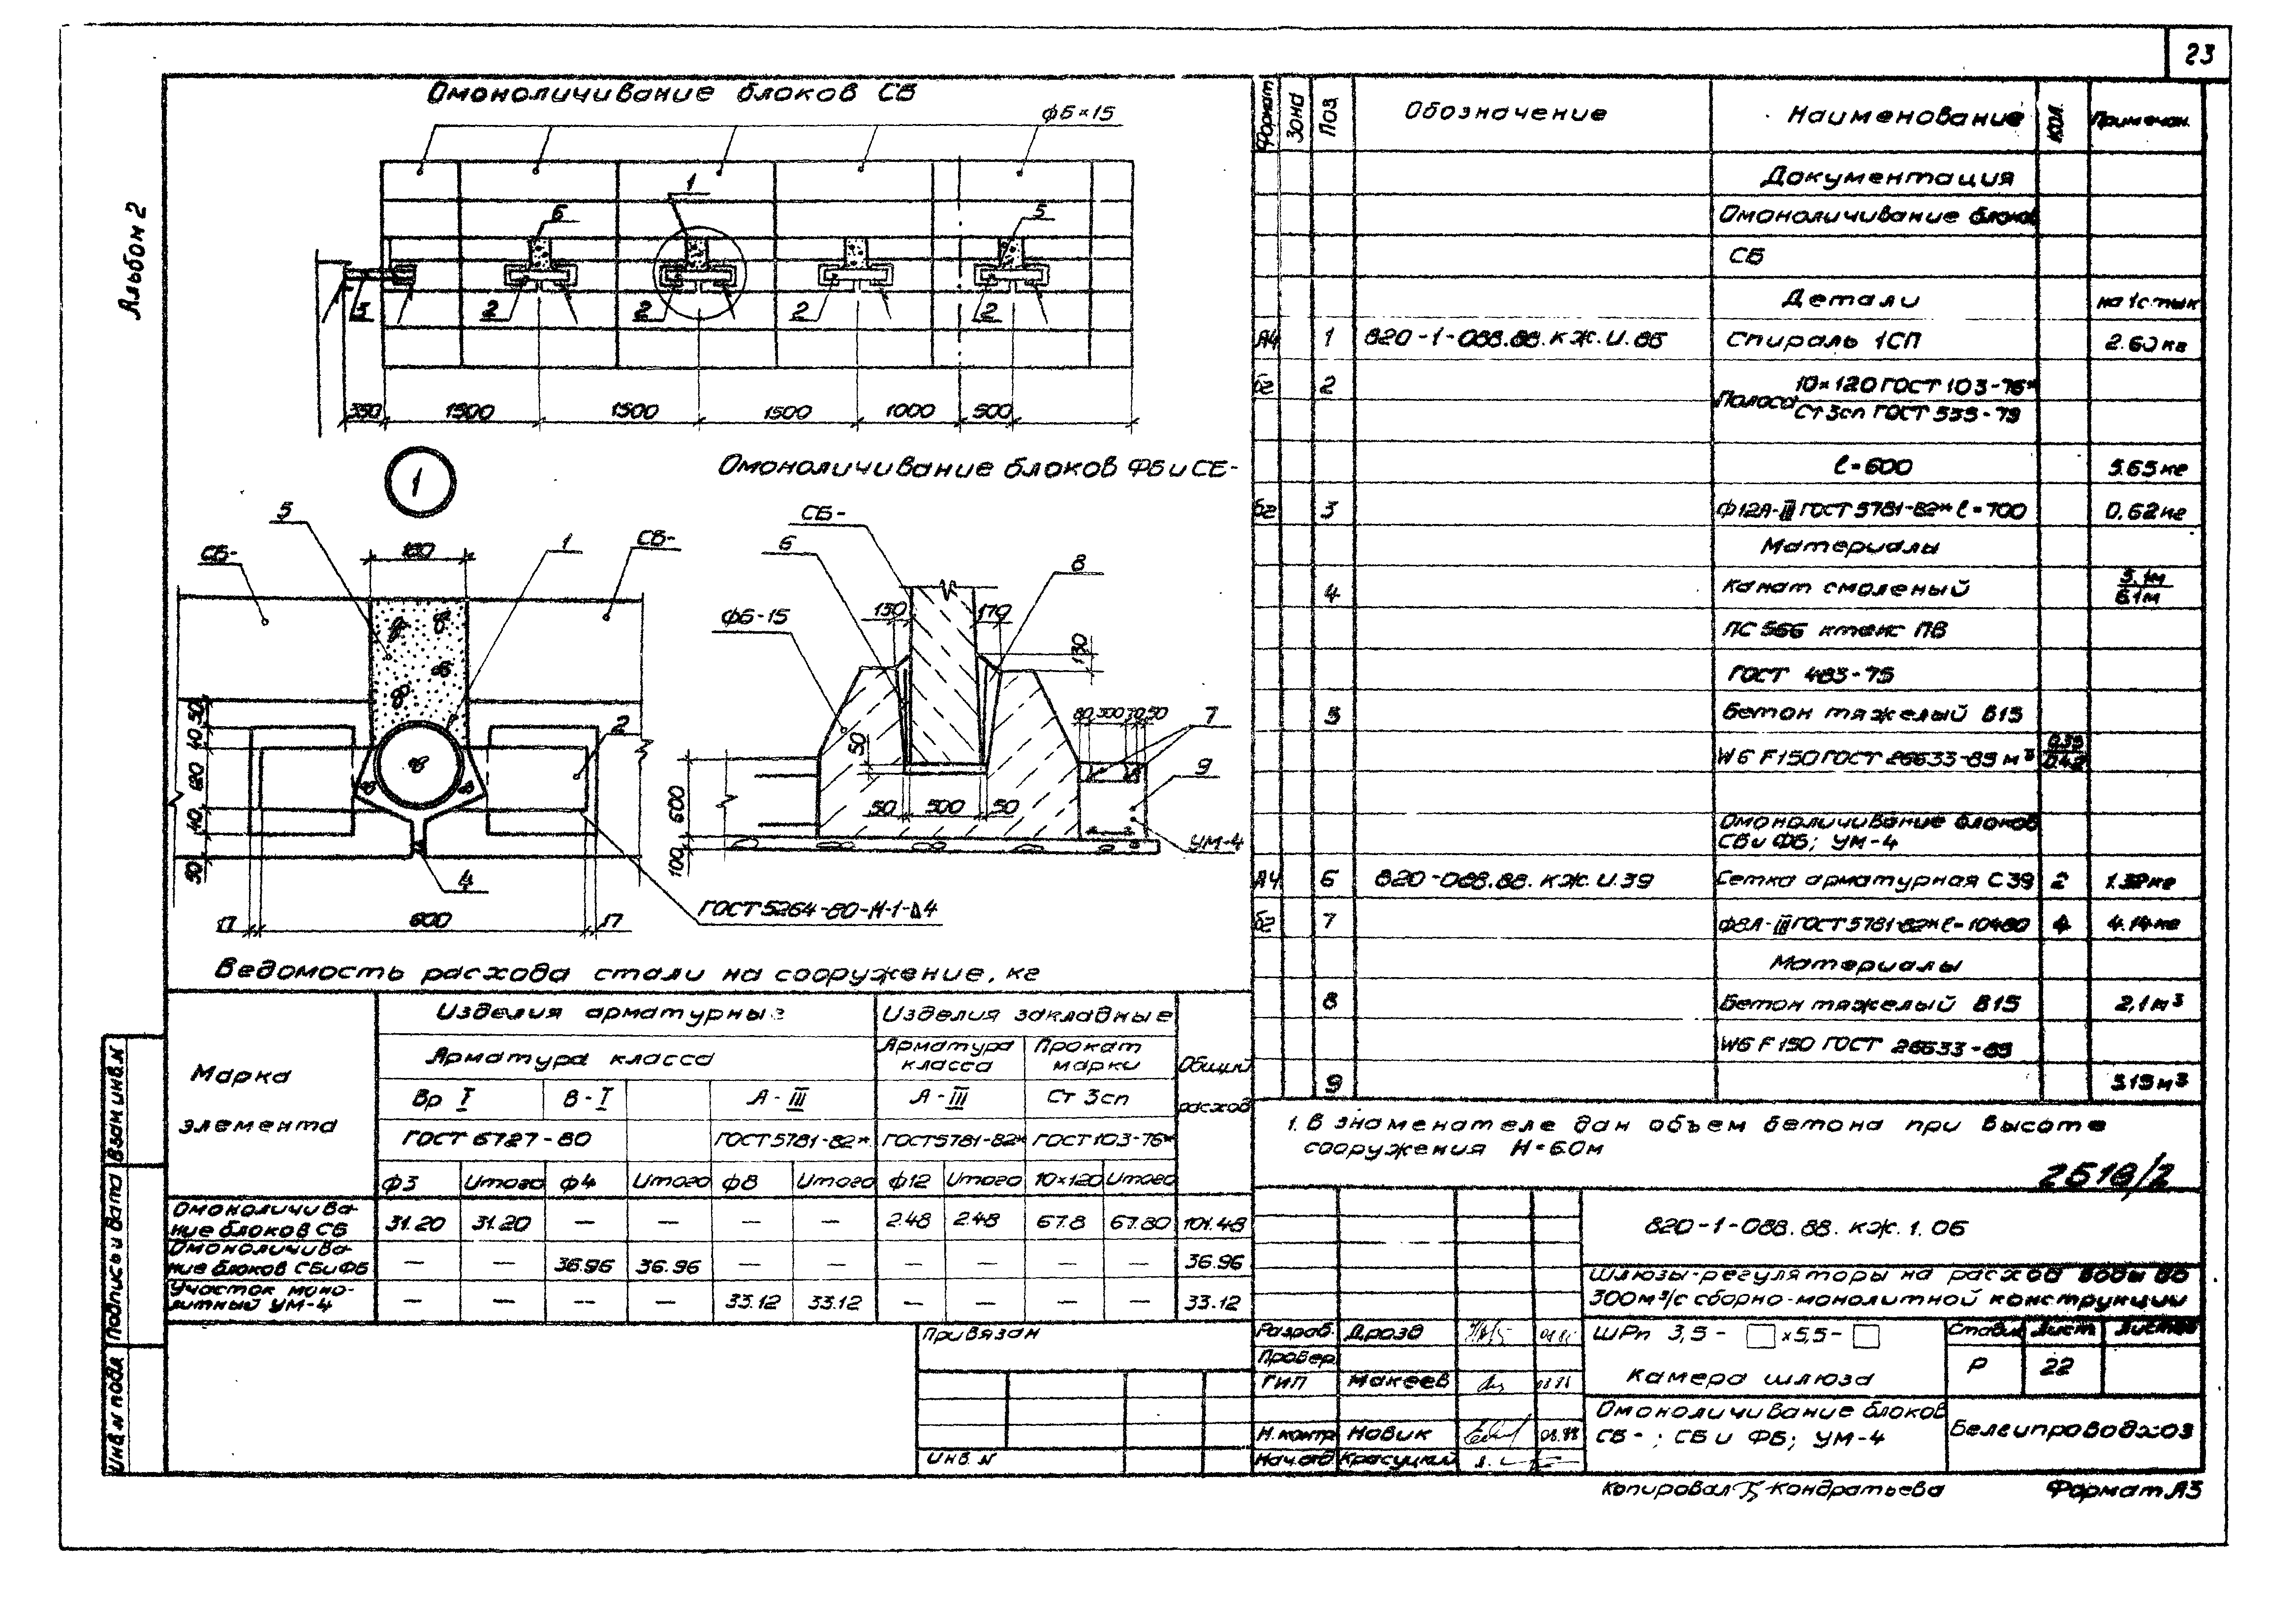 23
Альбом 2
Омоноличивание блоков СБ
ФБ×15
1
6
5
5
2
2
2
2
350
1500
1500
1500
1000
500
1
Омоноличивание блоков ФБ и СБ-
5
СБ-
СБ-
1
2
4
50
40
120
40
50
17
600
17
ГОСТ 5264-80-Н-1-Δ4
СБ-
6
8
ФБ-15
150
170
130
50
7
9
УМ-4
600
100
50
500
50
Ведомость расхода стали на сооружение, кг
Марка элемента
Изделия арматурные
Изделия закладные
Общий расход
Арматура класса
Арматура класса
Прокат марки
Вр I
В-I
А-III
А-III
Ст 3сп
ГОСТ 6727-80
ГОСТ 5781-82*
ГОСТ 5781-82*
ГОСТ 103-76*
Ф3 Итого Ф4 Итого Ф8 Итого Ф12 Итого 10×120 Итого
Омоноличива-
ние блоков СБ 31.20 31.20 — — — — 2.48 2.48 67.8 67.80 101.48
Омоноличива-
ние блоков СБ и ФБ — — 36.96 36.96 — — — — — — 36.96
Участок моно-
литный УМ-4 — — — — 33.12 33.12 — — — — 33.12
Формат Зона Поз. Обозначение Наименование Кол. Примечан.
Документация
Омоноличивание блоков
СБ
Детали на 1 стык
А4 1 820-1-088.88.КЖ.И.86 Спираль 1СП 2.60 кг
бг 2 Полоса 10×120 ГОСТ 103-76*
Ст 3сп ГОСТ 535-79
ℓ=600 5.65 кг
бг 3 Ф12А-III ГОСТ 5781-82* ℓ=700 0.62 кг
Материалы
4 Канат смоленый 5.1м
6.1м
ПС 566 ктекс ПВ
ГОСТ 483-75
5 Бетон тяжелый В15
W6 F150 ГОСТ 26633-85 м³
Омоноличивание блоков
СБ и ФБ; УМ-4
А4 6 820-088.88.КЖ.И.39 Сетка арматурная С39 2
бг 7 Ф8А-III ГОСТ 5781-82* ℓ=10480 4 4.14 кг
Материалы
8 Бетон тяжелый В15 2,1 м³
W6 F150 ГОСТ 26633-85
9 3.15 м³
1. В знаменателе дан объем бетона при высоте
сооружения Н=6.0м
2518/2
820-1-088.88.КЖ.1.06
Шлюзы-регуляторы на расход воды до
300м³/с сборно-монолитной конструкции
ШРп 3,5-□×5,5-□
Камера шлюза
Стадия Лист Листов
Р 22
Омоноличивание блоков
СБ-; СБ и ФБ; УМ-4
Белгипроводхоз
Разраб. Дрозд
Провер.
ГИП Макеев
Н.контр. Новик 08.88
Нач.отд. Красуцкий
Привязан
Инв. N
Взам инв. N
Подпись и дата
Инв. N подл
Копировал Кондратьева
Формат А3